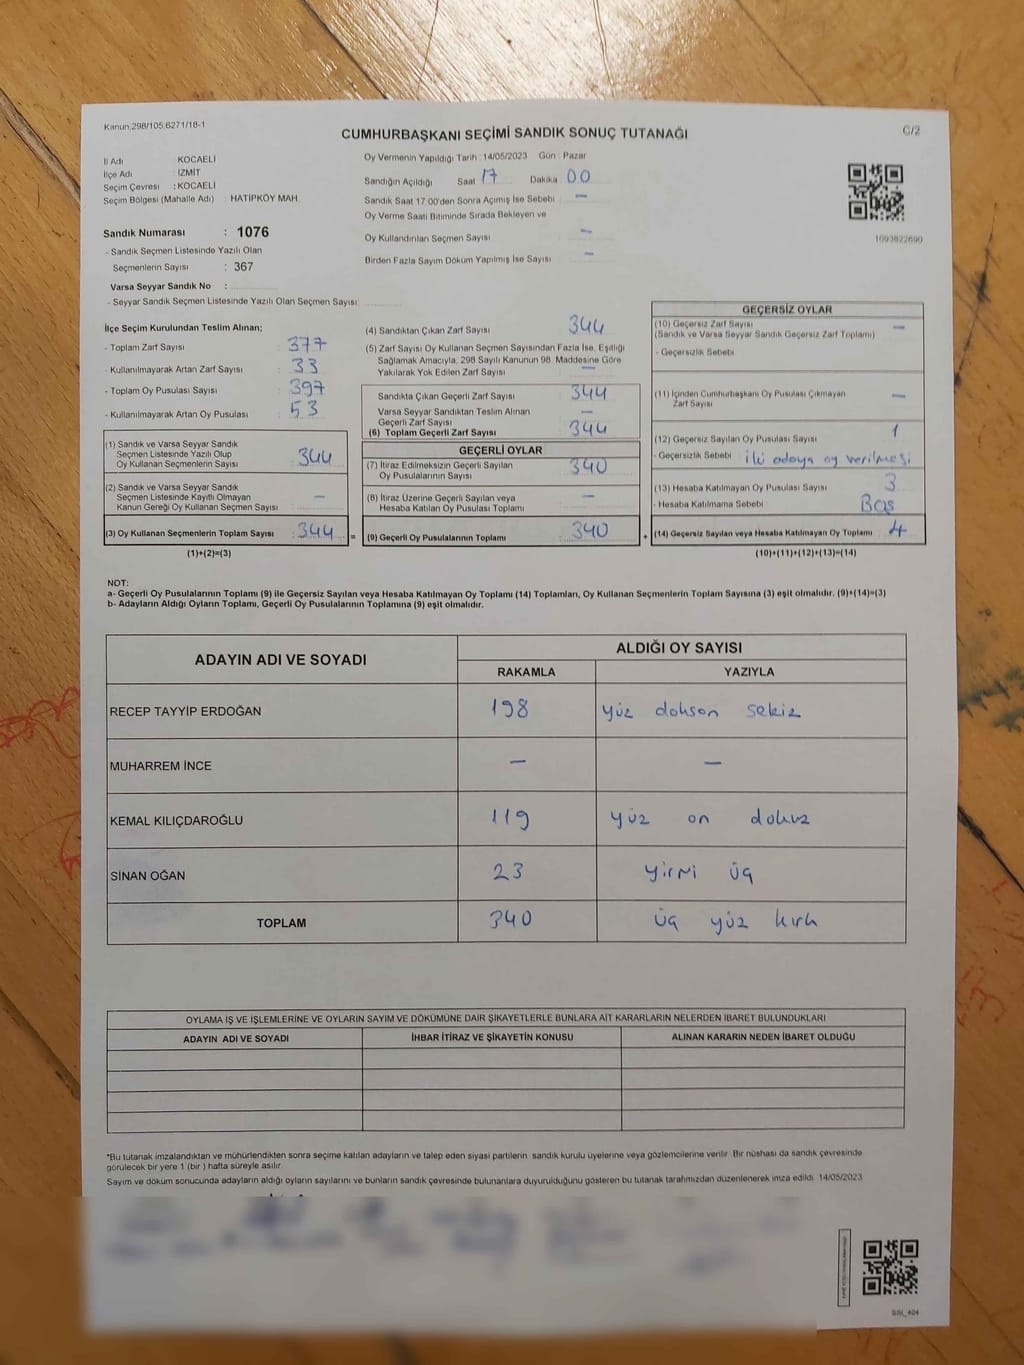 Kanun,298/105,6271/18-1
C/2
CUMHURBAŞKANI SEÇİMİ SANDIK SONUÇ TUTANAĞI
İl Adı KOCAELİ
İlçe Adı : İZMİT
Seçim Çevresi : KOCAELİ
Seçim Bölgesi (Mahalle Adı) : HATIPKÖY MAH.
Sandık Numarası : 1076
- Sandık Seçmen Listesinde Yazılı Olan
Seçmenlerin Sayısı : 367
Varsa Seyyar Sandık No :
- Seyyar Sandık Seçmen Listesinde Yazılı Olan Seçmen Sayısı:
Oy Vermenin Yapıldığı Tarih : 14/05/2023 Gün : Pazar
Sandığın Açıldığı Saat 17 Dakika 00
Sandık Saat 17.00'den Sonra Açılmış İse Sebebi —
Oy Verme Saati Bitiminde Sırada Bekleyen ve
Oy Kullandırılan Seçmen Sayısı —
Birden Fazla Sayım Döküm Yapılmış İse Sayısı —
1093822690
İlçe Seçim Kurulundan Teslim Alınan;
- Toplam Zarf Sayısı : 377
- Kullanılmayarak Artan Zarf Sayısı : 33
- Toplam Oy Pusulası Sayısı : 397
- Kullanılmayarak Artan Oy Pusulası : 53
(1) Sandık ve Varsa Seyyar Sandık
Seçmen Listesinde Yazılı Olup
Oy Kullanan Seçmenlerin Sayısı : 344
(2) Sandık ve Varsa Seyyar Sandık
Seçmen Listesinde Kayıtlı Olmayan
Kanun Gereği Oy Kullanan Seçmen Sayısı : —
(3) Oy Kullanan Seçmenlerin Toplam Sayısı : 344 =
(1)+(2)=(3)
(4) Sandıktan Çıkan Zarf Sayısı 344
(5) Zarf Sayısı Oy Kullanan Seçmen Sayısından Fazla İse, Eşitliği
Sağlamak Amacıyla, 298 Sayılı Kanunun 98. Maddesine Göre
Yakılarak Yok Edilen Zarf Sayısı —
Sandıkta Çıkan Geçerli Zarf Sayısı 344
Varsa Seyyar Sandıktan Teslim Alınan
Geçerli Zarf Sayısı —
(6) Toplam Geçerli Zarf Sayısı 344
GEÇERLİ OYLAR
(7) İtiraz Edilmeksizin Geçerli Sayılan
Oy Pusulalarının Sayısı : 340
(8) İtiraz Üzerine Geçerli Sayılan veya
Hesaba Katılan Oy Pusulası Toplamı : —
(9) Geçerli Oy Pusulalarının Toplamı : 340 +
GEÇERSİZ OYLAR
(10) Geçersiz Zarf Sayısı
(Sandık ve Varsa Seyyar Sandık Geçersiz Zarf Toplamı) —
- Geçersizlik Sebebi
(11) İçinden Cumhurbaşkanı Oy Pusulası Çıkmayan
Zarf Sayısı —
(12) Geçersiz Sayılan Oy Pusulası Sayısı 1
- Geçersizlik Sebebi iki adaya oy verilmesi
(13) Hesaba Katılmayan Oy Pusulası Sayısı 3
- Hesaba Katılmama Sebebi Boş
(14) Geçersiz Sayılan veya Hesaba Katılmayan Oy Toplamı 4
(10)+(11)+(12)+(13)=(14)
NOT:
a- Geçerli Oy Pusulalarının Toplamı (9) ile Geçersiz Sayılan veya Hesaba Katılmayan Oy Toplamı (14) Toplamları, Oy Kullanan Seçmenlerin Toplam Sayısına (3) eşit olmalıdır. (9)+(14)=(3)
b- Adayların Aldığı Oyların Toplamı, Geçerli Oy Pusulalarının Toplamına (9) eşit olmalıdır.
ADAYIN ADI VE SOYADI ALDIĞI OY SAYISI
RAKAMLA YAZIYLA
RECEP TAYYİP ERDOĞAN 198 yüz doksan sekiz
MUHARREM İNCE — —
KEMAL KILIÇDAROĞLU 119 yüz on dokuz
SİNAN OĞAN 23 yirmi üç
TOPLAM 340 üç yüz kırk
OYLAMA İŞ VE İŞLEMLERİNE VE OYLARIN SAYIM VE DÖKÜMÜNE DAİR ŞİKAYETLERLE BUNLARA AİT KARARLARIN NELERDEN İBARET BULUNDUKLARI
ADAYIN ADI VE SOYADI İHBAR İTİRAZ VE ŞİKAYETİN KONUSU ALINAN KARARIN NEDEN İBARET OLDUĞU
*Bu tutanak imzalandıktan ve mühürlendikten sonra seçime katılan adayların ve talep eden siyasi partilerin sandık kurulu üyelerine veya gözlemcilerine verilir. Bir nüshası da sandık çevresinde
görülecek bir yere 1 (bir) hafta süreyle asılır.
Sayım ve döküm sonucunda adayların aldığı oyların sayılarını ve bunların sandık çevresinde bulunanlara duyurulduğunu gösteren bu tutanak tarafımızdan düzenlenerek imza edildi. 14/05/2023